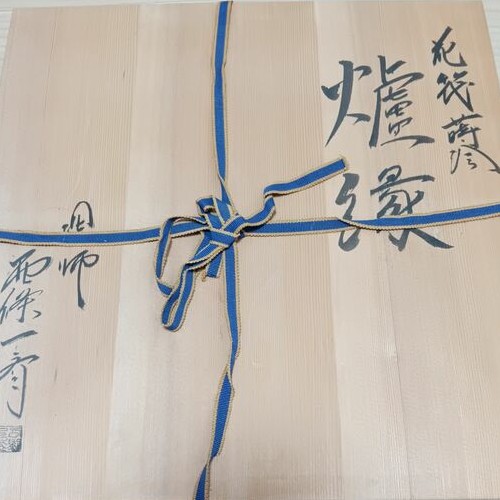 花筏蒔絵
爐縁
塗師
西條一斎